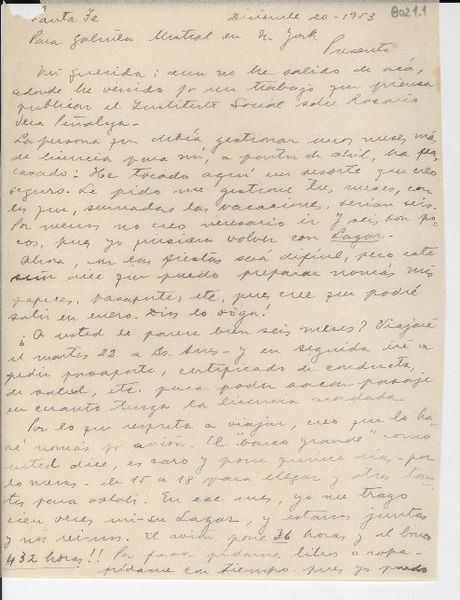 Santa Fe Diciembre 20 - 1953
8021.1
Para Gabriela Mistral en N. York
Presente
Mi querida: aun no he salido de acá,
adonde he venido por un trabajo que piensa
publicar el Instituto Social sobre Rosario
Vera Peñaloza.
La persona que debía gestionar unos meses más
de licencia para mí, a partir de abril, ha fra
casado. He tocado aquí un resorte que creo
seguro. Le pido me gestione tres meses, con
los que, sumadas las vacaciones, serían seis.
Por menos no creo necesario ir. Y seis, son po
cos, pues yo quisiera volver con Lagar.
Ahora, en las fiestas será difícil, pero este
señor dice que puedo preparar nomás mis
papeles, pasaporte, etc, pues cree que podré
salir en enero. Dios lo oiga!
¿A usted le parece bien seis meses? Viajaré
el martes 22 a Bs. Aires - y en seguida iré a
pedir pasaporte, certificado de conducta,
de salud, etc. para poder sacar pasaje
en cuanto tenga la licencia acordada.
Por lo que respecta a viajar, creo que lo ha
ré nomás por avión. El "barco grande" como
usted dice, es caro y pone quince días - por
lo menos - de 15 a 18 para llegar y otros tan
tos para volver. En ese mes, yo me trago
cien veces mi-su Lagar, y estamos juntas
y nos reímos. El avión pone 36 horas y el barco
432 horas!! Por favor pídame libros o ropa -
pídame con tiempo - pues yo puedo